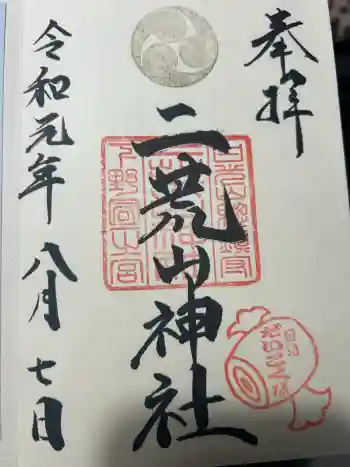 奉拝
二荒山神社
令和元年 八月 七日
下野國一之宮